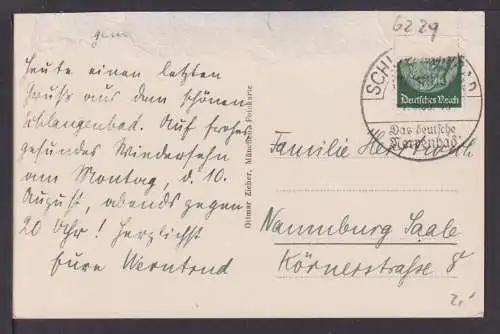 6229
Heute einen letzten
Gruß aus dem schönen
Schlangenbad. Auf frohes
gesundes Wiedersehn
am Montag, d. 10.
August, abends gegen
20 Uhr! Herzlichst
Eure
Ottmar Zieher, München
SCHL
Deutsches Reich
Das deutsche
Nervenbad
Familie
Naumburg Saale
Körnerstraße 8